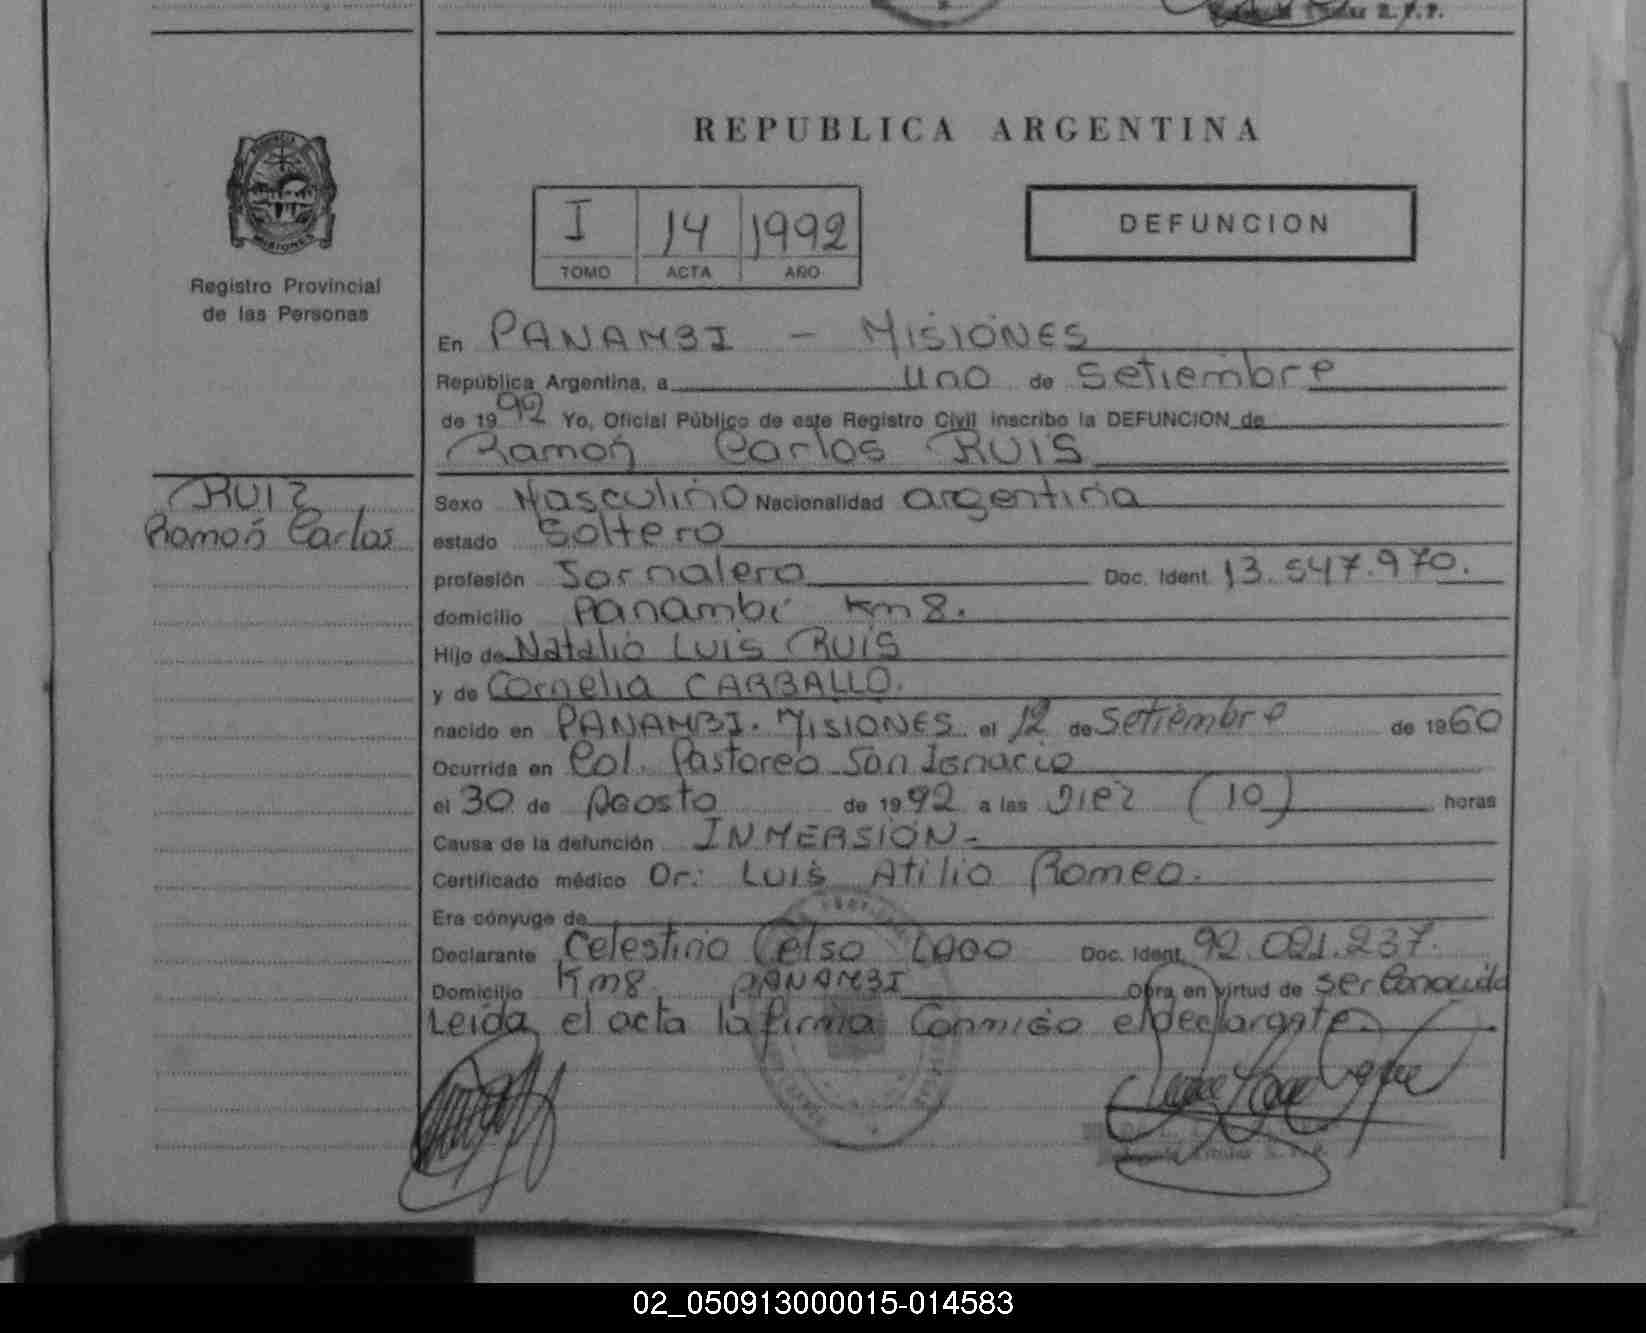 REPUBLICA ARGENTINA
PROVINCIA
MISIONES
Registro Provincial
de las Personas
I 14 1992
TOMO ACTA AÑO
DEFUNCION
En PANAMBI - MISIONES
República Argentina, a uno de Setiembre
de 1992 Yo, Oficial Público de este Registro Civil inscribo la DEFUNCION de
Ramón Carlos RUIS
RUIZ
Ramón Carlos
Sexo Masculino Nacionalidad argentina
estado Soltero
profesión Jornalero Doc. Ident. 13.547.970.
domicilio Panambí Km 8.
Hijo de Natalio Luis RUIS
y de Cornelia CARBALLO.
nacido en PANAMBI. MISIONES el 12 de Setiembre de 1960
Ocurrida en Col. Pastoreo San Ignacio
el 30 de Agosto de 1992 a las Diez (10) horas
Causa de la defunción INMERSIÓN-
Certificado médico Dr: Luis Atilio Romeo.
Era cónyuge de
Declarante Celestino Celso LAGO Doc. Ident. 92.021.237.
Domicilio Km8 PANAMBI Obra en virtud de ser Conocido
Leída el acta la firma Conmigo el declarante.
02_050913000015-014583